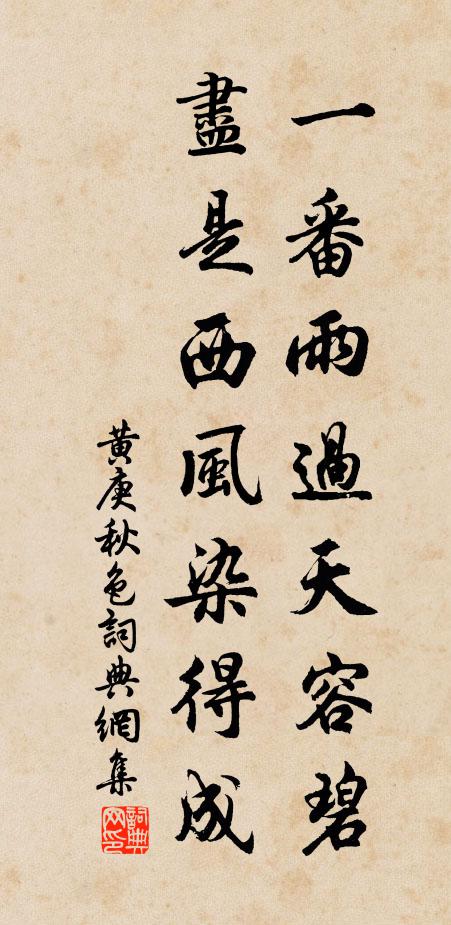 一番雨過天容碧
盡是西風染得成
黃庚秋色詞典網集
詞典網印